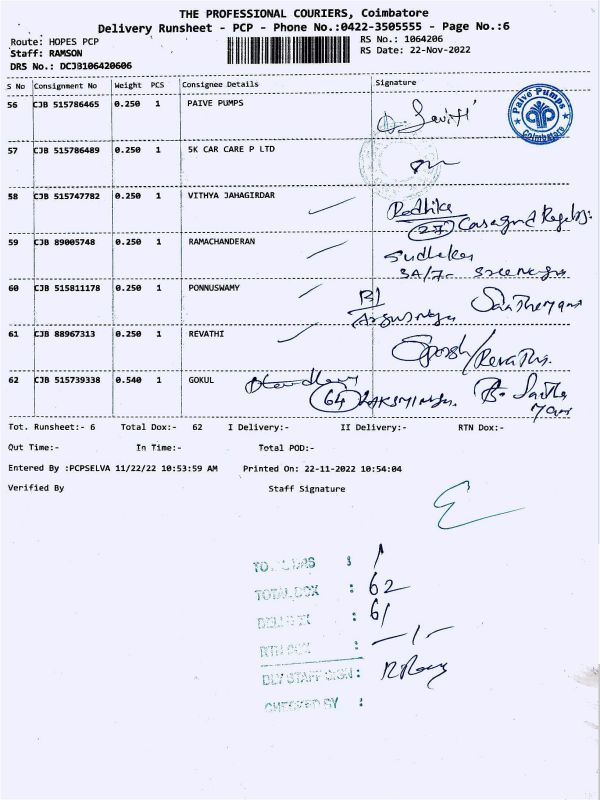 THE PROFESSIONAL COURIERS, Coimbatore
Delivery Runsheet - PCP - Phone No.:0422-3505555 - Page No.:6
Route: HOPES PCP RS No.: 1064206
Staff: RAMSON RS Date: 22-Nov-2022
DRS No.: DCJB106420606
S No Consignment No Weight PCS Consignee Details Signature
56 CJB 515786465 0.250 1 PAIVE PUMPS
Paive Pumps Coimbatore
57 CJB 515786489 0.250 1 5K CAR CARE P LTD
58 CJB 515747782 0.250 1 VITHYA JAHAGIRDAR Radhika
27
59 CJB 89005748 0.250 1 RAMACHANDERAN Sudhakar
3A/7-
60 CJB 515811178 0.250 1 PONNUSWAMY B1
61 CJB 88967313 0.250 1 REVATHI /Revathi.
62 CJB 515739338 0.540 1 GOKUL
64
Tot. Runsheet:- 6 Total Dox:- 62 I Delivery:- II Delivery:- RTN Dox:-
Out Time:- In Time:- Total POD:-
Entered By :PCPSELVA 11/22/22 10:53:59 AM Printed On: 22-11-2022 10:54:04
Verified By Staff Signature
: 1
TOTAL DOX : 62
: 61
RTN DOX : -1-
DLY STAFF SIGN :
CHECKED BY :